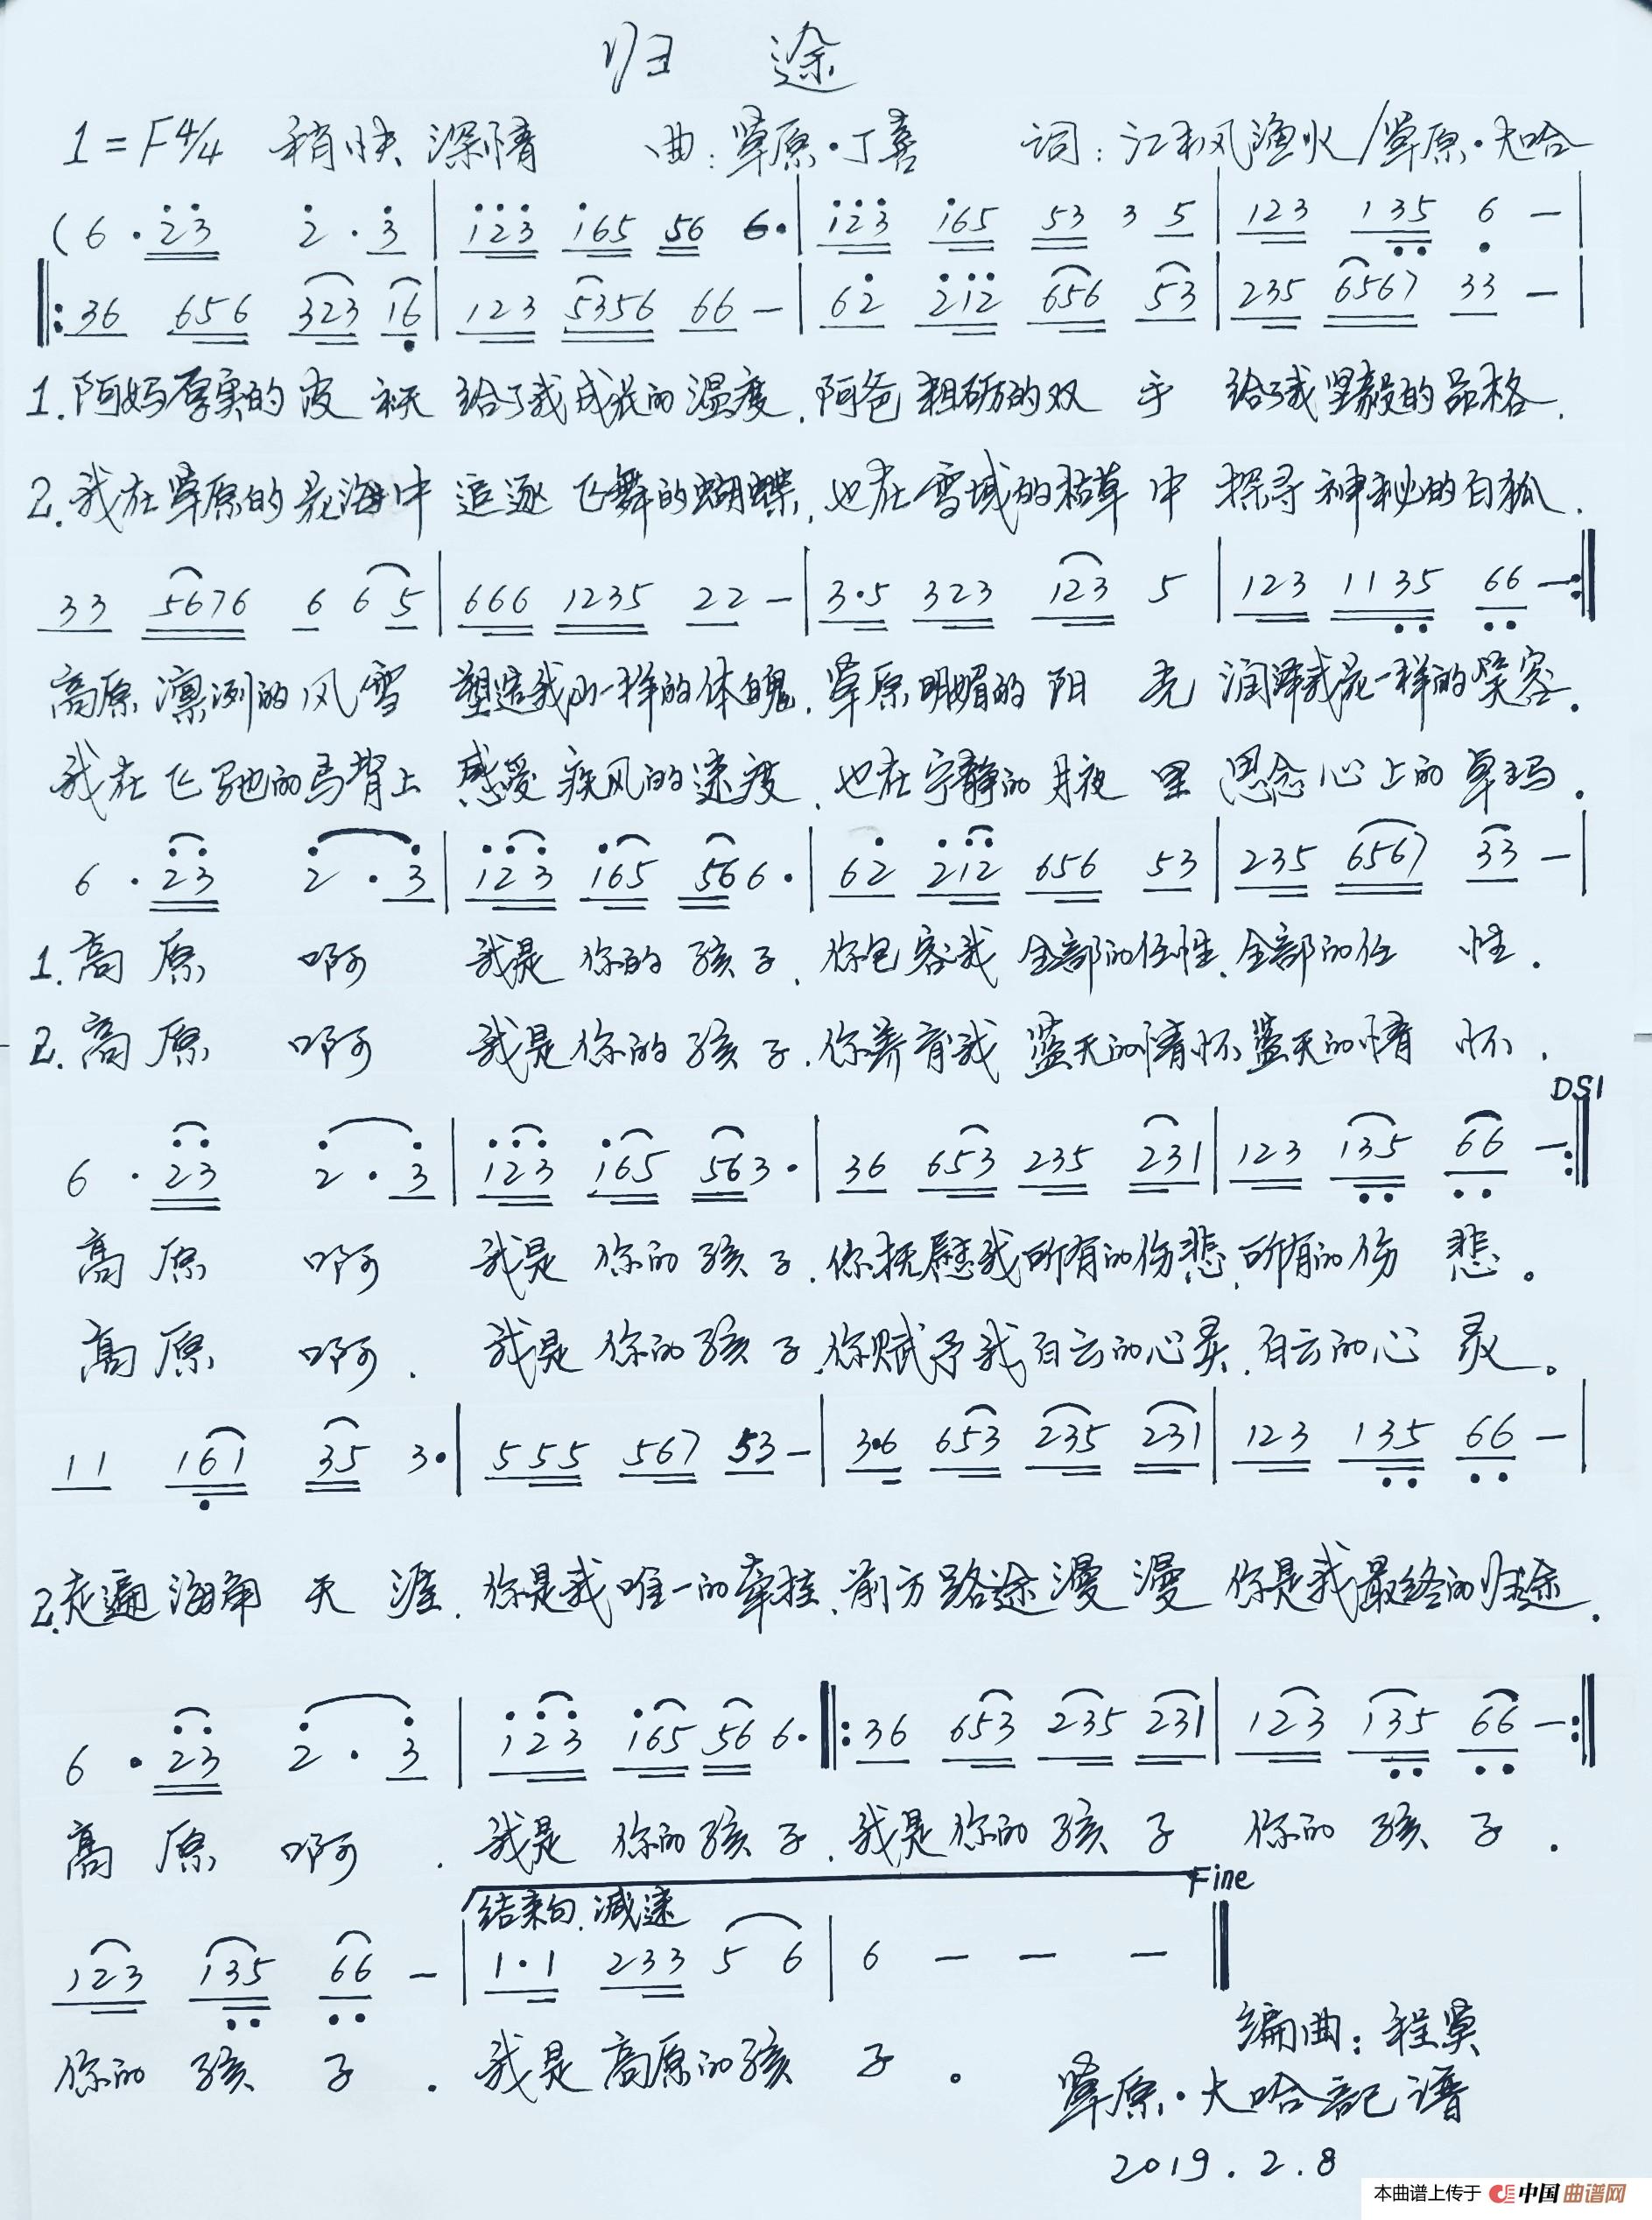 归 途
1=F4/4 稍快 深情 曲：草原·丁喜 词：江枫渔火/草原·大哈
(6·23 2·3 | 123 165 56 6· | 123 165 53 3 5 | 123 135 6 — |
‖: 36 656 323 16 | 123 5356 66 — | 62 212 656 53 | 235 6567 33 — |
1. 阿妈厚实的皮袄 给了我成长的温度, 阿爸粗砺的双 手 给了我坚毅的品格.
2. 我在草原的花海中 追逐 飞舞的蝴蝶, 也在雪域的枯草 中 探寻神秘的白狐.
33 5676 6 6 5 | 666 1235 22 — | 3·5 323 123 5 | 123 1135 66 — :‖
高原 凛冽的风雪 塑造我山一样的体魄, 草原明媚的 阳 光 润泽我花一样的笑容.
我在飞驰的马背上 感受 疾风的速度, 也在宁静的 月夜 里 思念心上的卓玛.
6·23 2·3 | 123 165 56 6· | 62 212 656 53 | 235 6567 33 — |
1. 高 原 啊 我是 你的 孩子, 你包容我 全部的任性, 全部的任 性.
2. 高 原 啊 我是你的 孩子, 你养育我 蓝天的情怀 蓝天的情 怀.
DS1
6·23 2·3 | 123 165 56 3· | 36 653 235 231 | 123 135 66 — :‖
高 原 啊 我是 你的 孩子, 你抚慰我所有的伤悲, 所有的伤 悲。
高 原 啊. 我是 你的孩子 你赋予我白云的心灵, 白云的心 灵。
11 161 35 3· | 555 567 53 — | 3·6 653 235 231 | 123 135 66 — |
2. 走遍 海角 天 涯, 你是我唯一的牵挂, 前方路途漫 漫 你是我最终的归途.
6·23 2·3 | 123 165 56 6· ‖: 36 653 235 231 | 123 135 66 — :‖
高 原 啊. 我是 你的孩子, 我是你的孩 子 你的 孩 子.
结束句.减速 Fine
123 135 66 — | 1·1 233 5 6 | 6 — — — ‖
你的 孩 子. 我是高原的孩 子。
编曲：程昊
草原·大哈記谱
2019.2.8
本曲谱上传于 中国曲谱网